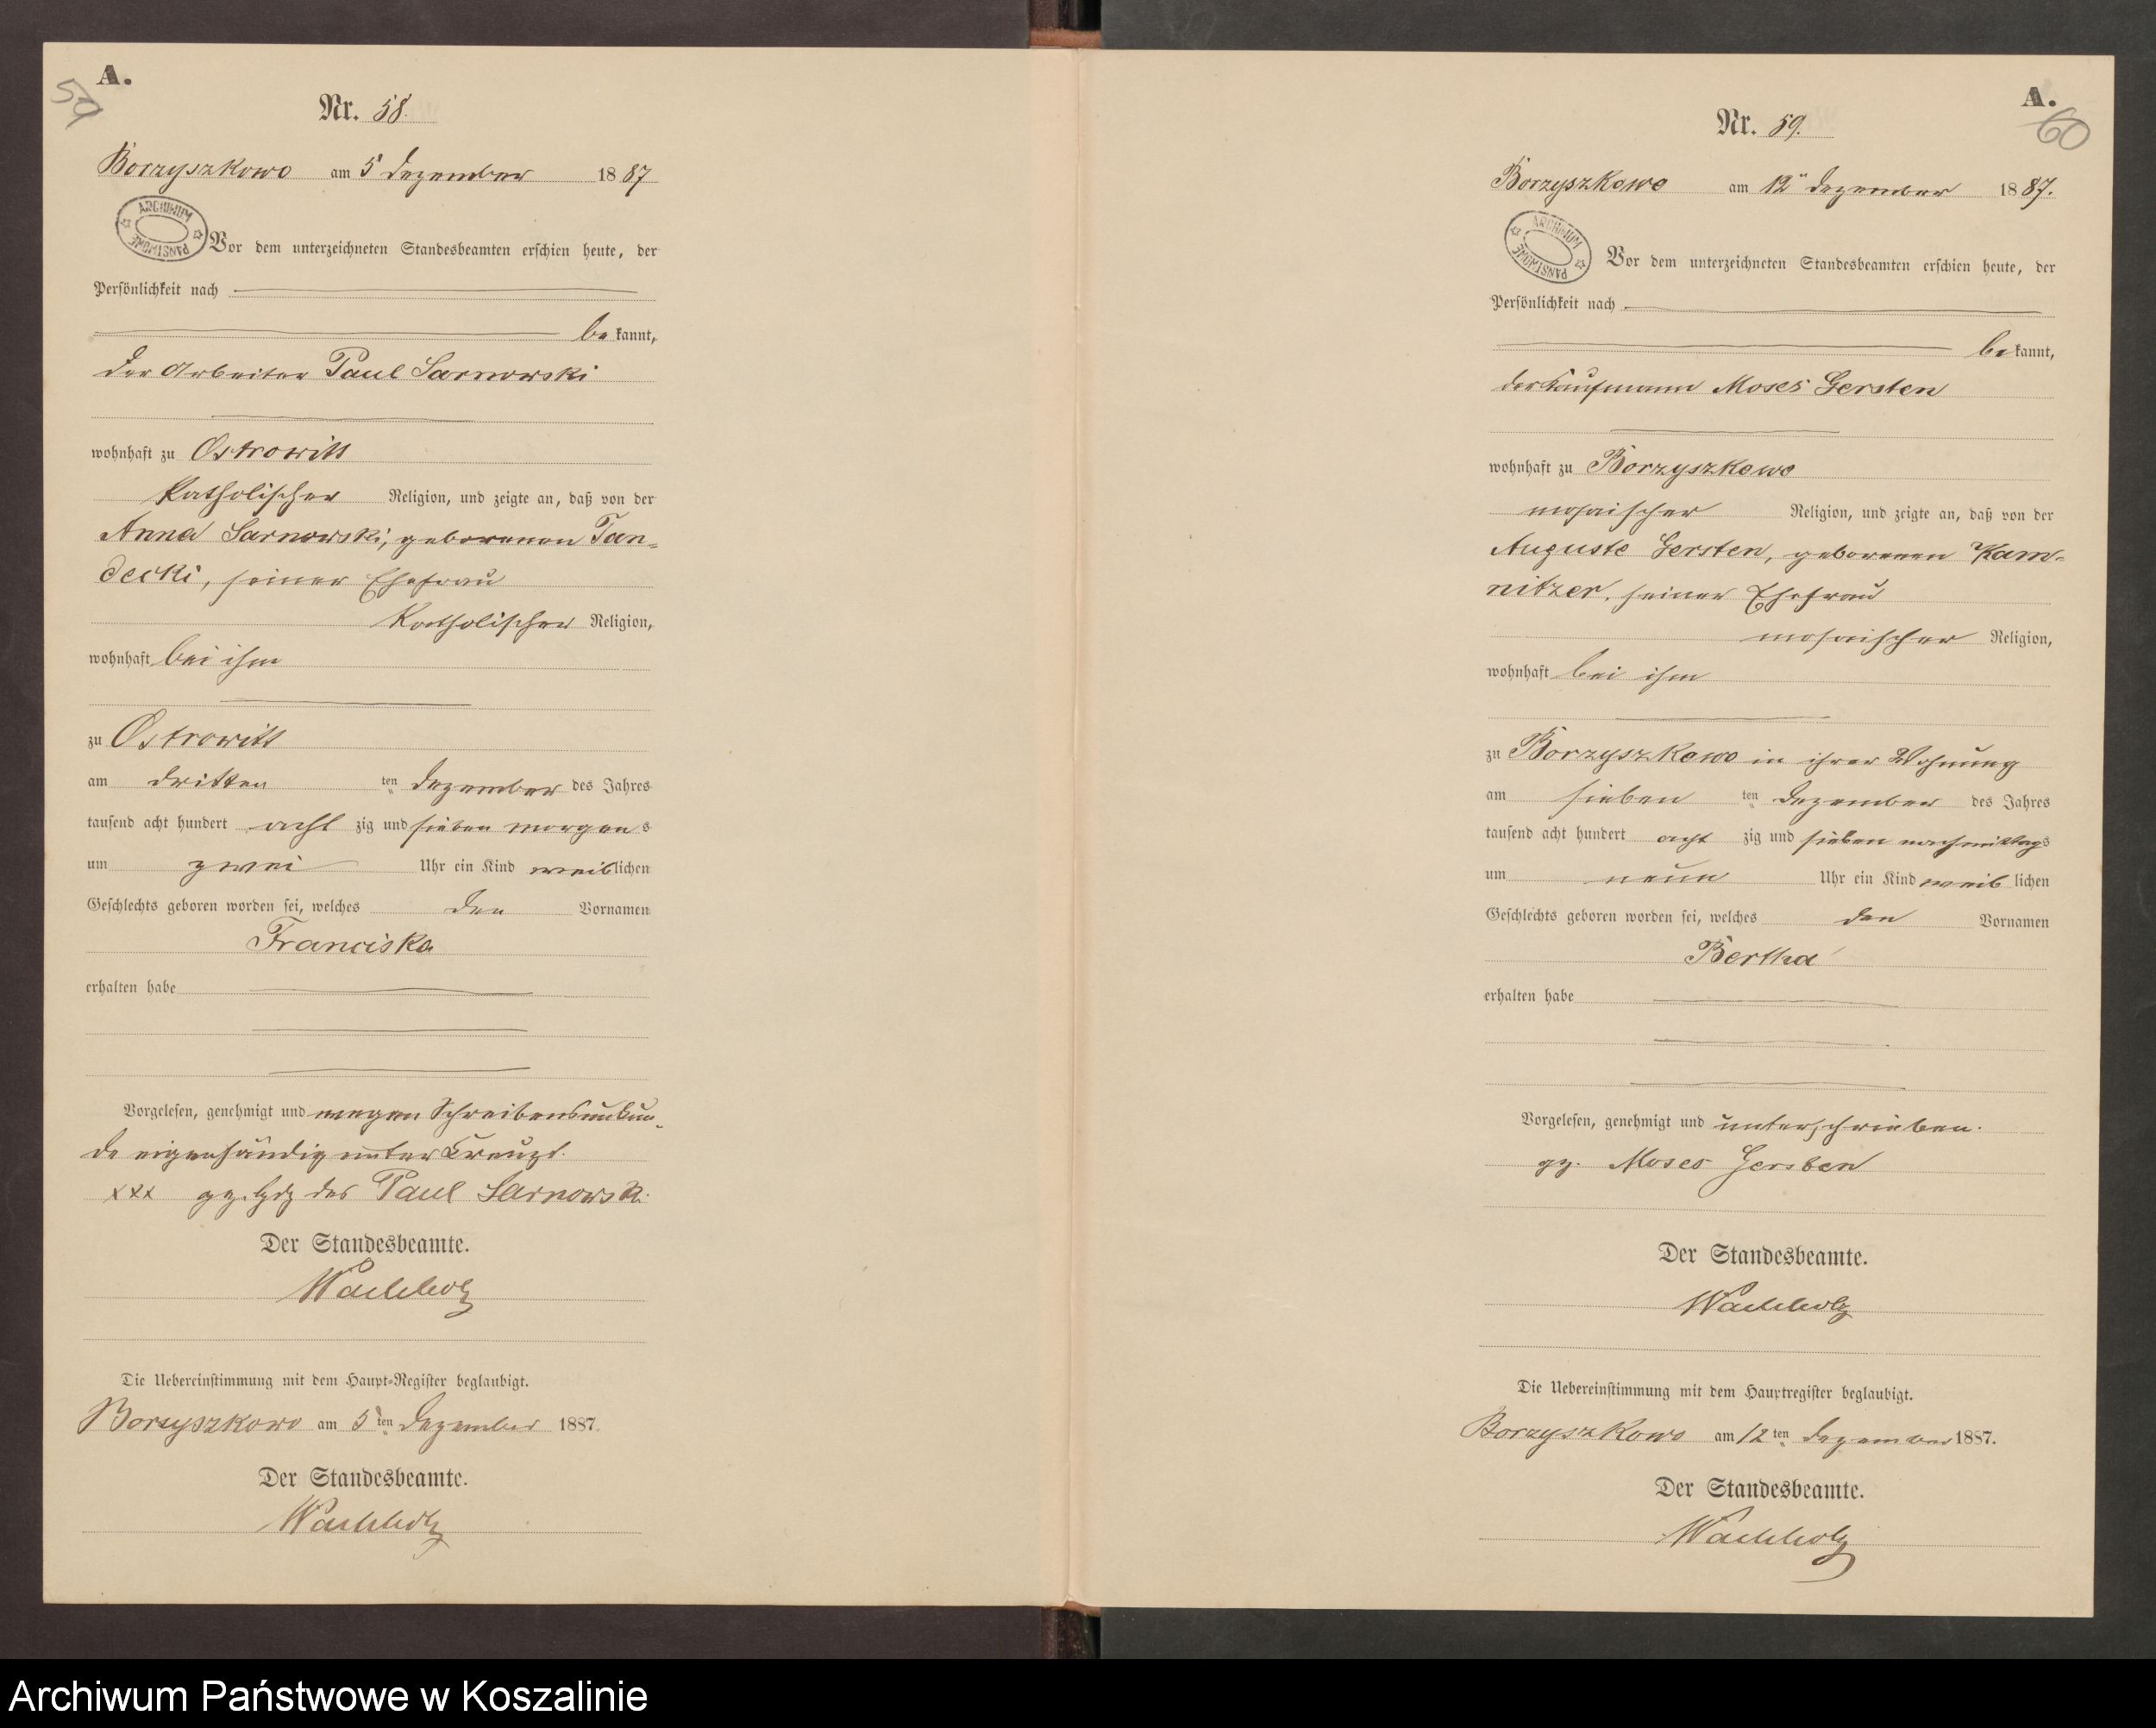 A.
59
Nr. 58.
Borzyszkowo am 5 Dezember 1887
ARCHIWUM PAŃSTWOWE
Vor dem unterzeichneten Standesbeamten erschien heute, der
Persönlichkeit nach
bekannt,
der Arbeiter Paul Sarnowski
wohnhaft zu Ostrowitt
katholischer Religion, und zeigte an, daß von der
Anna Sarnowski, geborenen Tan-
decki, seiner Ehefrau
katholischer Religion,
wohnhaft bei ihm
zu Ostrowitt
am dritten ten Dezember des Jahres
tausend acht hundert acht zig und sieben morgens
um zwei Uhr ein Kind weiblichen
Geschlechts geboren worden sei, welches den Vornamen
Franciska
erhalten habe
Vorgelesen, genehmigt und wegen Schreibensunkun-
de eigenhändig unterkreuzt.
xxx gz. Hdz des Paul Sarnowski
Der Standesbeamte.
Wachholz
Die Uebereinstimmung mit dem Haupt-Register beglaubigt.
Borzyszkowo am 5ten Dezember 1887.
Der Standesbeamte.
Wachholz
A.
60
Nr. 59.
Borzyszkowo am 12ⁿ Dezember 1887.
ARCHIWUM PAŃSTWOWE
Vor dem unterzeichneten Standesbeamten erschien heute, der
Persönlichkeit nach
bekannt,
der Kaufmann Moses Gersten
wohnhaft zu Borzyszkowo
mosaischer Religion, und zeigte an, daß von der
Auguste Gersten, geborenen Kam-
nitzer, seiner Ehefrau
mosaischer Religion,
wohnhaft bei ihm
zu Borzyszkowo in ihrer Wohnung
am sieben ten Dezember des Jahres
tausend acht hundert acht zig und sieben nachmittags
um neun Uhr ein Kind weiblichen
Geschlechts geboren worden sei, welches den Vornamen
Bertha
erhalten habe
Vorgelesen, genehmigt und unterschrieben.
gz. Moses Gersten
Der Standesbeamte.
Wachholz
Die Uebereinstimmung mit dem Hauptregister beglaubigt.
Borzyszkowo am 12ten Dezember 1887.
Der Standesbeamte.
Wachholz
Archiwum Państwowe w Koszalinie